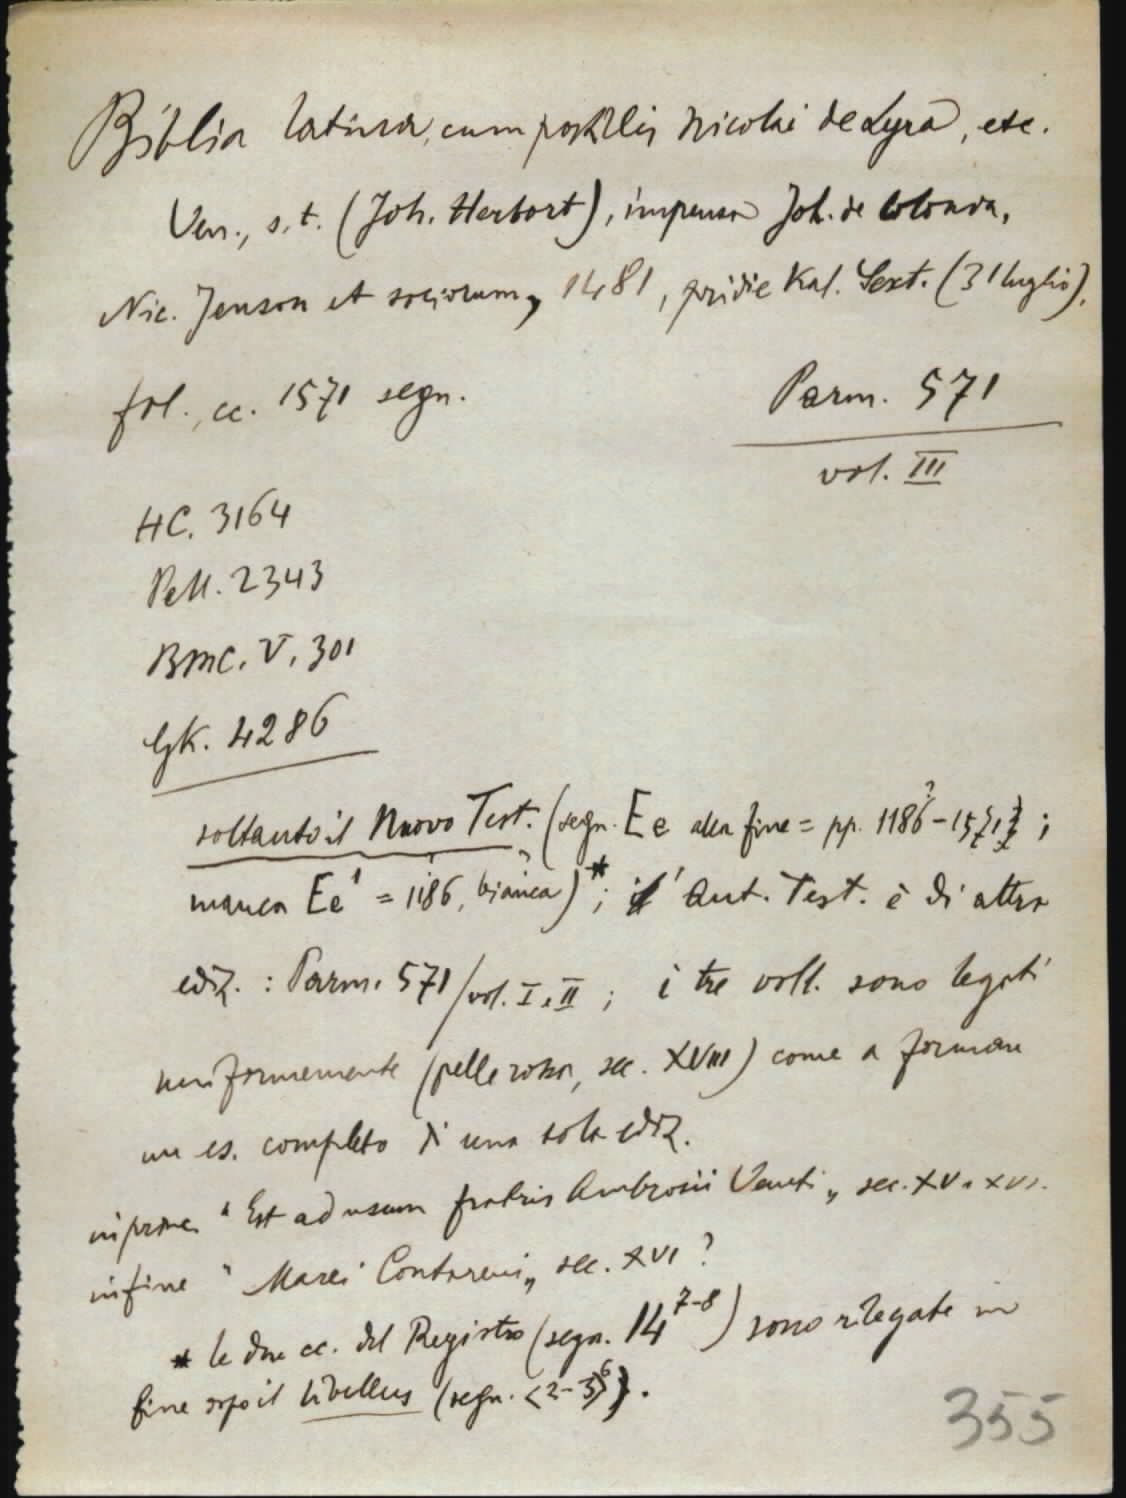 Biblia latina, cum postillis Nicolai de Lyra, etc.
Ven., s. t. (Joh. Herbort), impensa Joh. de Colonia,
Nic. Jenson et sociorum, 1481, pridie Kal. Sext. (31 luglio),
fol., cc. 1571 segn.
Parm. 571
vol. III
HC. 3164
Pell. 2343
BMC. V. 301
GK. 4286
soltanto il Nuovo Test. (segn. Ee alla fine = pp. 1186 - ;
manca Ee¹ = 1186, bianca)*; l'Ant. Test. è di altra
ediz. : Parm. 571/vol. I e II ; i tre voll. sono legati
uniformemente (pelle rossa, sec. XVIII) come a formare
un es. completo di una sola ediz.
in princ. "Est ad usum fratris Ambrosii Veneti„ sec. XV o XVI.
in fine "Marci Contareni„ sec. XVI ?
* le due cc. del Registro (segn. 14⁷⁻⁸) sono rilegate in
fine dopo il libellus (segn. <2-3⁶>).
355